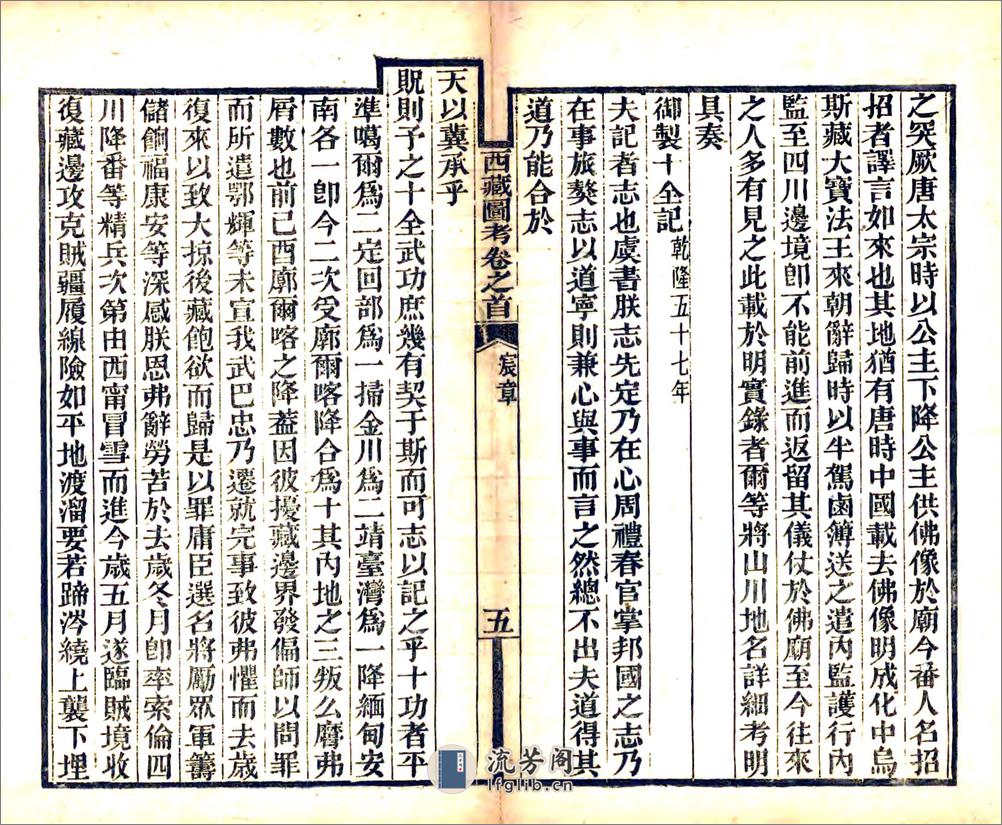 之突厥唐太宗時以公主下降公主供佛像於廟今番人名招
招者譯言如來也其地猶有唐時中國載去佛像明成化中烏
斯藏大寶法王來朝辭歸時以半駕鹵簿送之遣內監護行內
監至四川邊境卽不能前進而返留其儀仗於佛廟至今往來
之人多有見之此載於明實錄者爾等將山川地名詳細考明
具奏
御製十全記乾隆五十七年
夫記者志也虞書朕志先定乃在心周禮春官掌邦國之志乃
在事旅獒志以道寧則兼心與事而言之然總不出夫道得其
道乃能合於
西藏圖考卷之首
宸章
五
天以冀承乎
貺則予之十全武功庶幾有契于斯而可志以記之乎十功者平
準噶爾爲二定回部爲一掃金川爲二靖臺灣爲一降緬甸安
南各一卽今二次受廓爾喀降合爲十其內地之三叛么䯢弗
屑數也前己酉廓爾喀之降蓋因彼擾藏邊界發偏師以問罪
而所遣鄂輝等未宣我武巴忠乃遷就完事致彼弗懼而去歲
復來以致大掠後藏飽欲而歸是以罪庸臣選名將勵眾軍籌
儲餉福康安等深感朕恩弗辭勞苦於去歲冬月卽率索倫四
川降番等精兵次第由西甯冒雪而進今歲五月遂臨賊境收
復藏邊攻克賊疆履線險如平地渡溜要若蹄涔繞上襲下埋
流芳阁
lfglib.cn